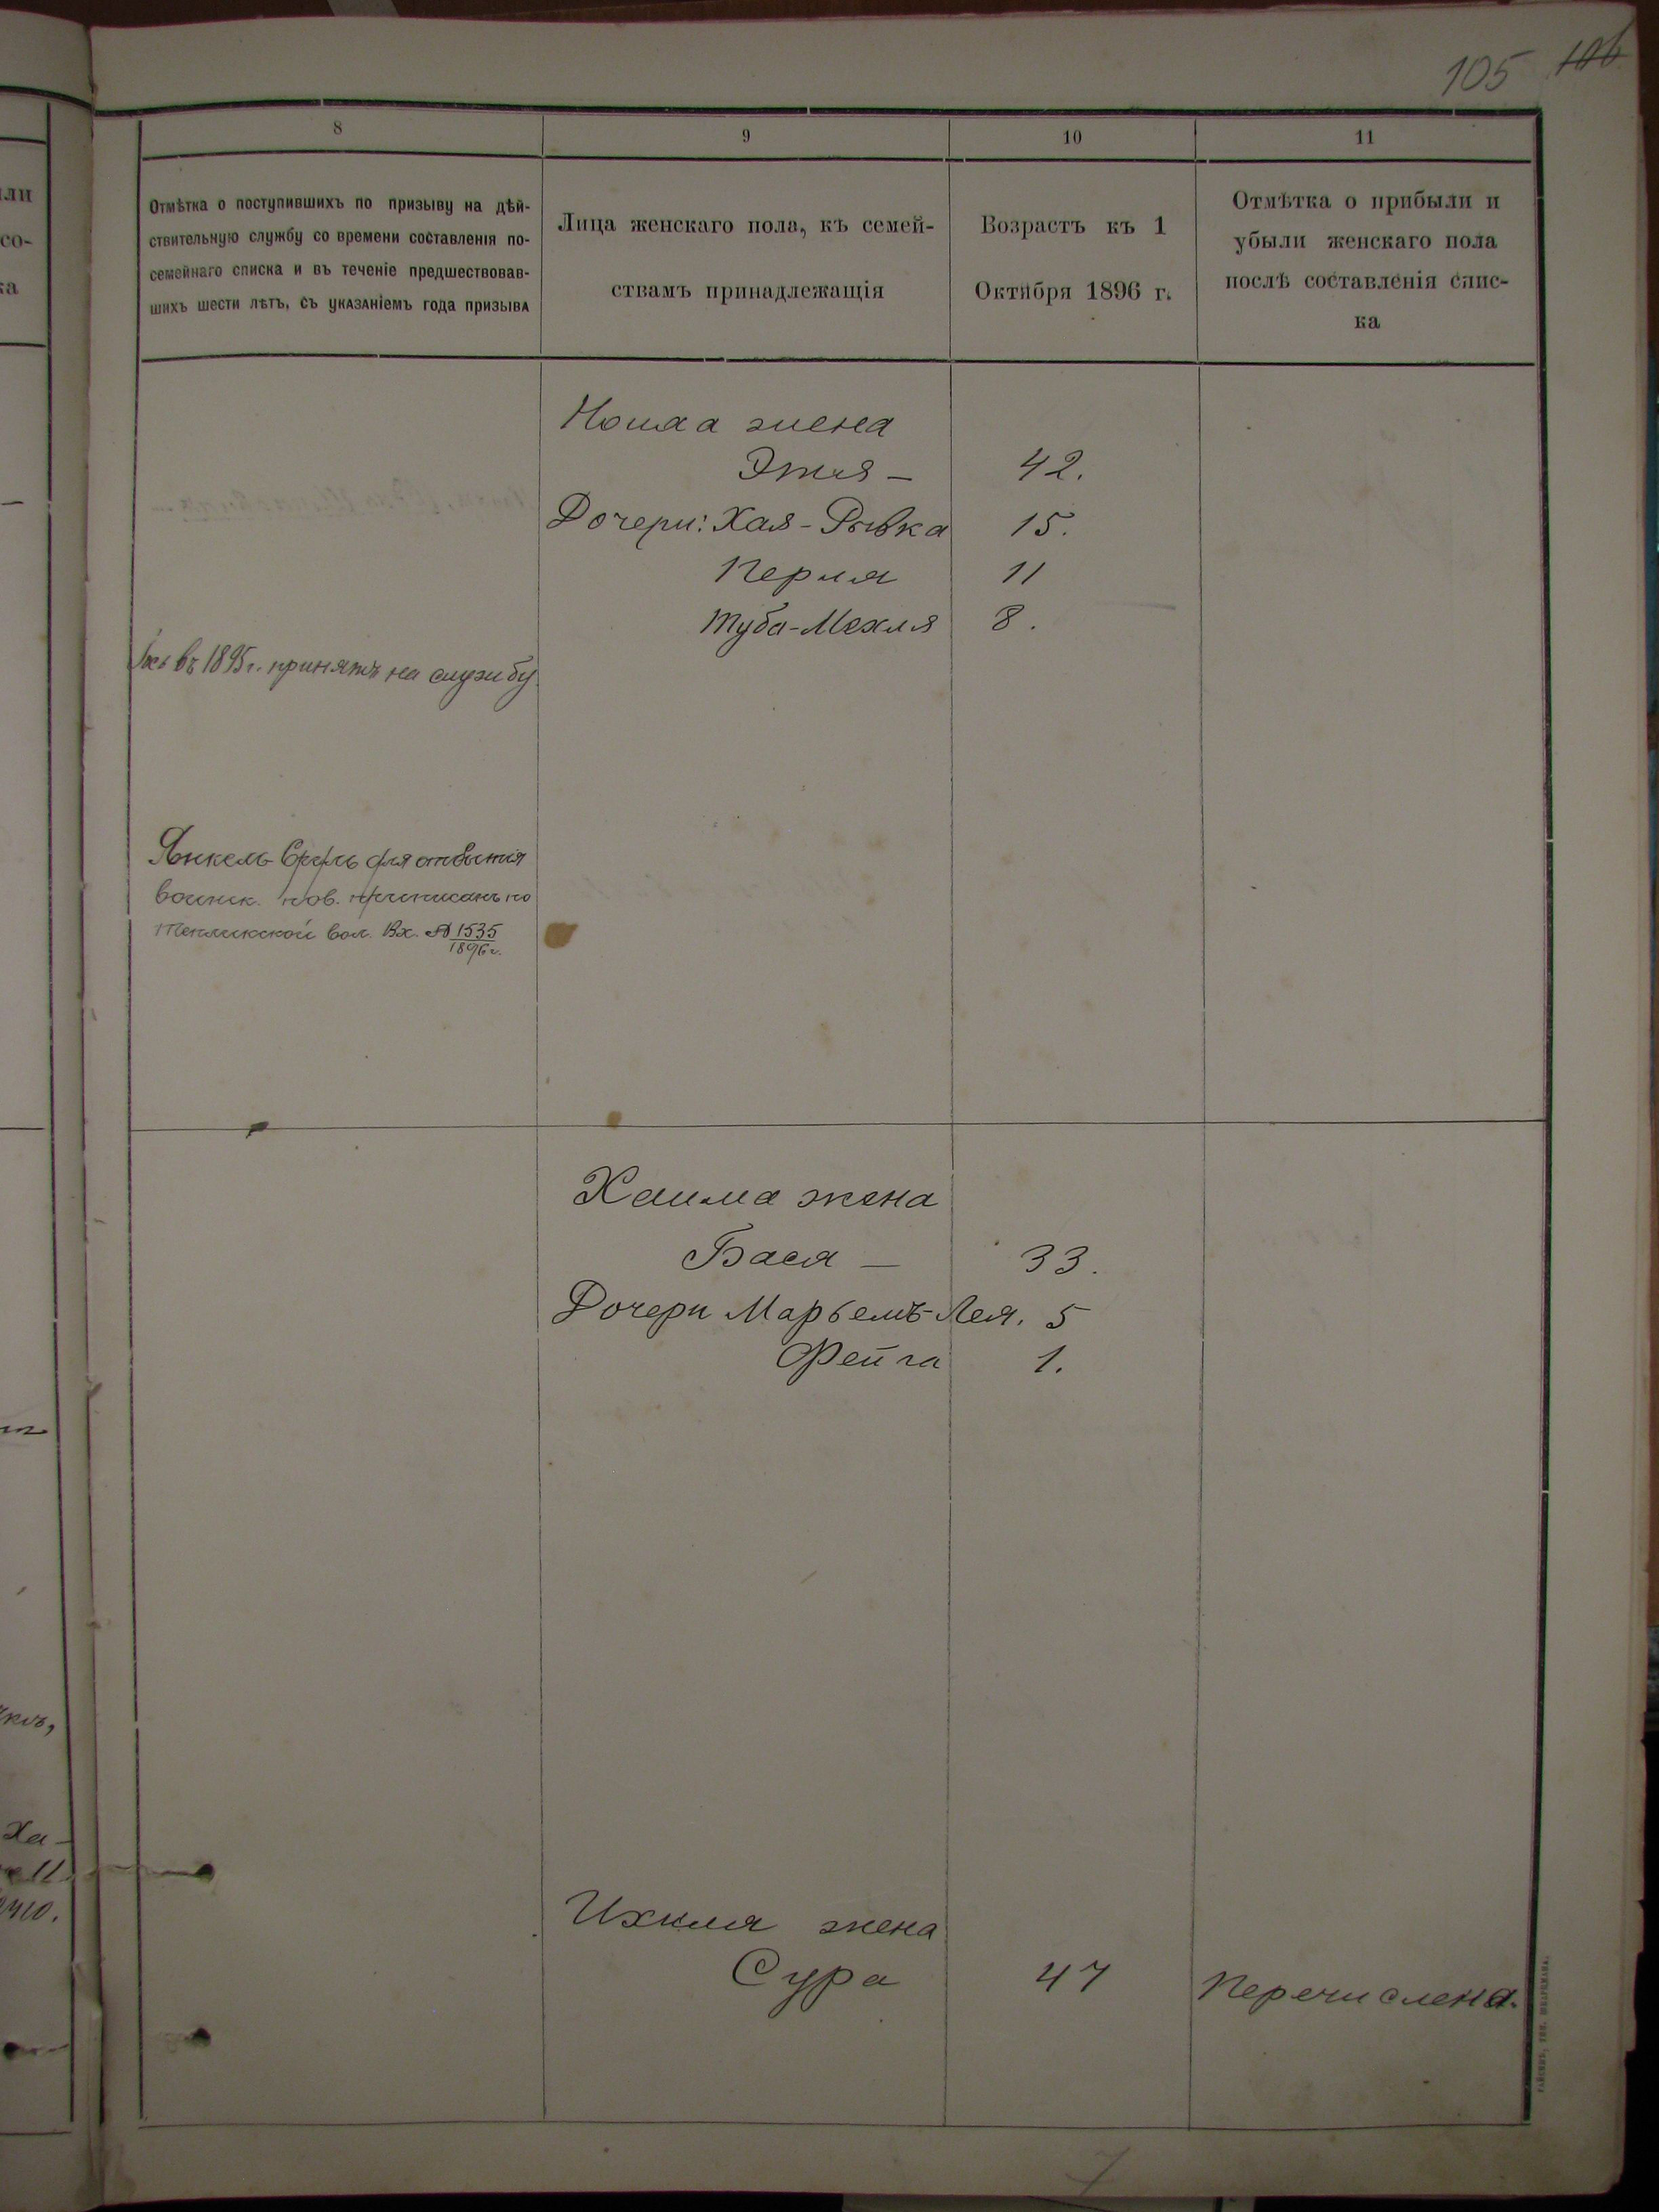 105 106
8
9
10
11
Отмѣтка о поступившихъ по призыву на дѣй-
ствительную службу со времени составленія по-
семейнаго списка и въ теченіе предшествовав-
шихъ шести лѣтъ, съ указаніемъ года призыва
Лица женскаго пола, къ семей-
ствамъ принадлежащія
Возрастъ къ 1
Октября 1896 г.
Отмѣтка о прибыли и
убыли женскаго пола
послѣ составленія спис-
ка
жена
Этля – 42.
Дочери: Хая-Рывка 15.
Перля 11
Туба-Мехля 8.
въ 1895 г. принятъ на службу
Янкель Сруль для отбытія
воинск. пов. приписанъ по
Тепликской вол. Вх. № 1535
1896 г.
Хаима жена
Бася – 33.
Дочери Марьемъ-Лея. 5
Фейга 1.
Ихиля жена
Сура 47 Перечислена.
7
ли
со-
ка
Ха-
11